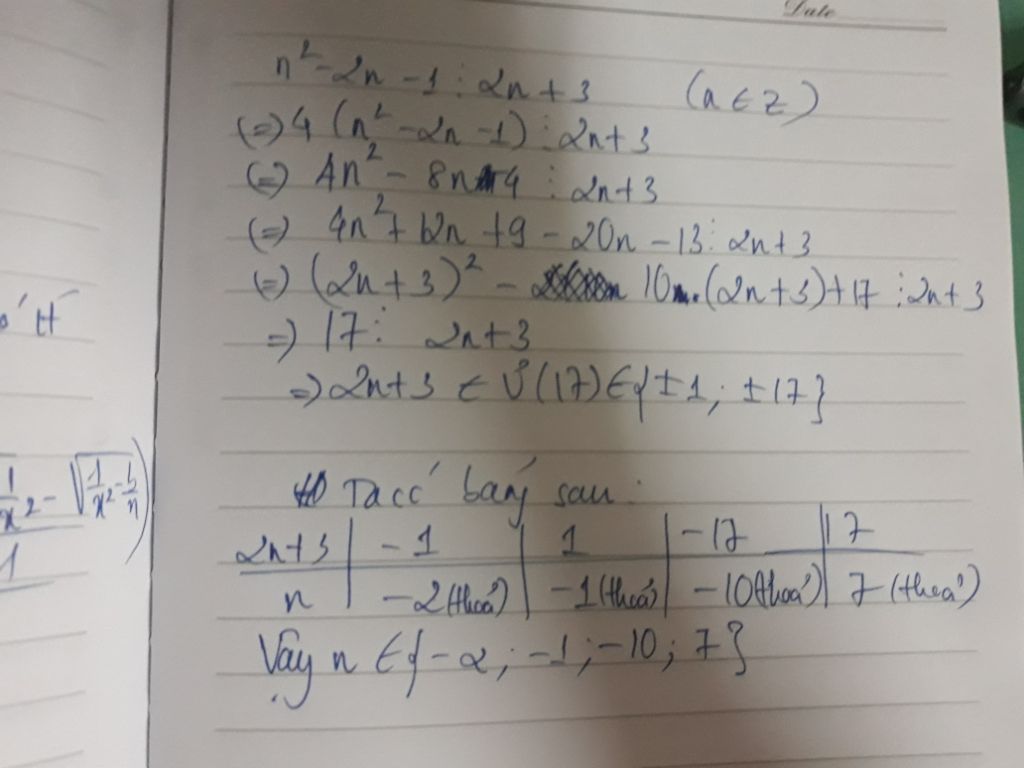 Date
n² - 2n - 1 ⋮ 2n + 3 (n ∈ Z)
(=) 4 (n² - 2n - 1) ⋮ 2n + 3
(=) 4n² - 8n - 4 ⋮ 2n + 3
(=) 4n² + 12n + 9 - 20n - 13 ⋮ 2n + 3
(=) (2n + 3)² - 10 . (2n + 3) + 17 ⋮ 2n + 3
=) 17 ⋮ 2n + 3
=) 2n + 3 ∈ Ư(17) ∈ {±1; ±17}
Ta có bảng sau:
2n+3 | -1 | 1 | -17 | 17
n | -2 (thoả) | -1 (thoả) | -10 (thoả) | 7 (thoả)
Vậy n ∈ {-2; -1; -10; 7}
1/x² - √(1/x² - b/n))
1